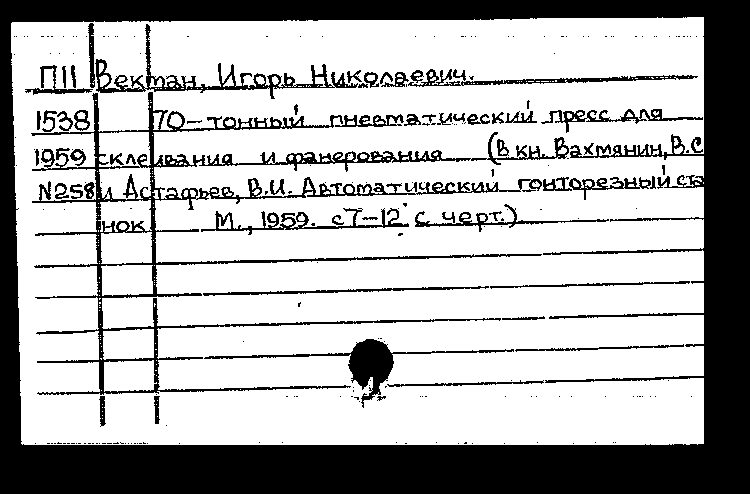 П11 Вектан, Игорь Николаевич.
1538 70-тонный пневматический пресс для
1959 склеивания и фанерования (В кн. Вахмянин, В.С
N258 и Астафьев, В.И. Автоматический гонторезный ста
нок М., 1959. с7-12 с черт.)